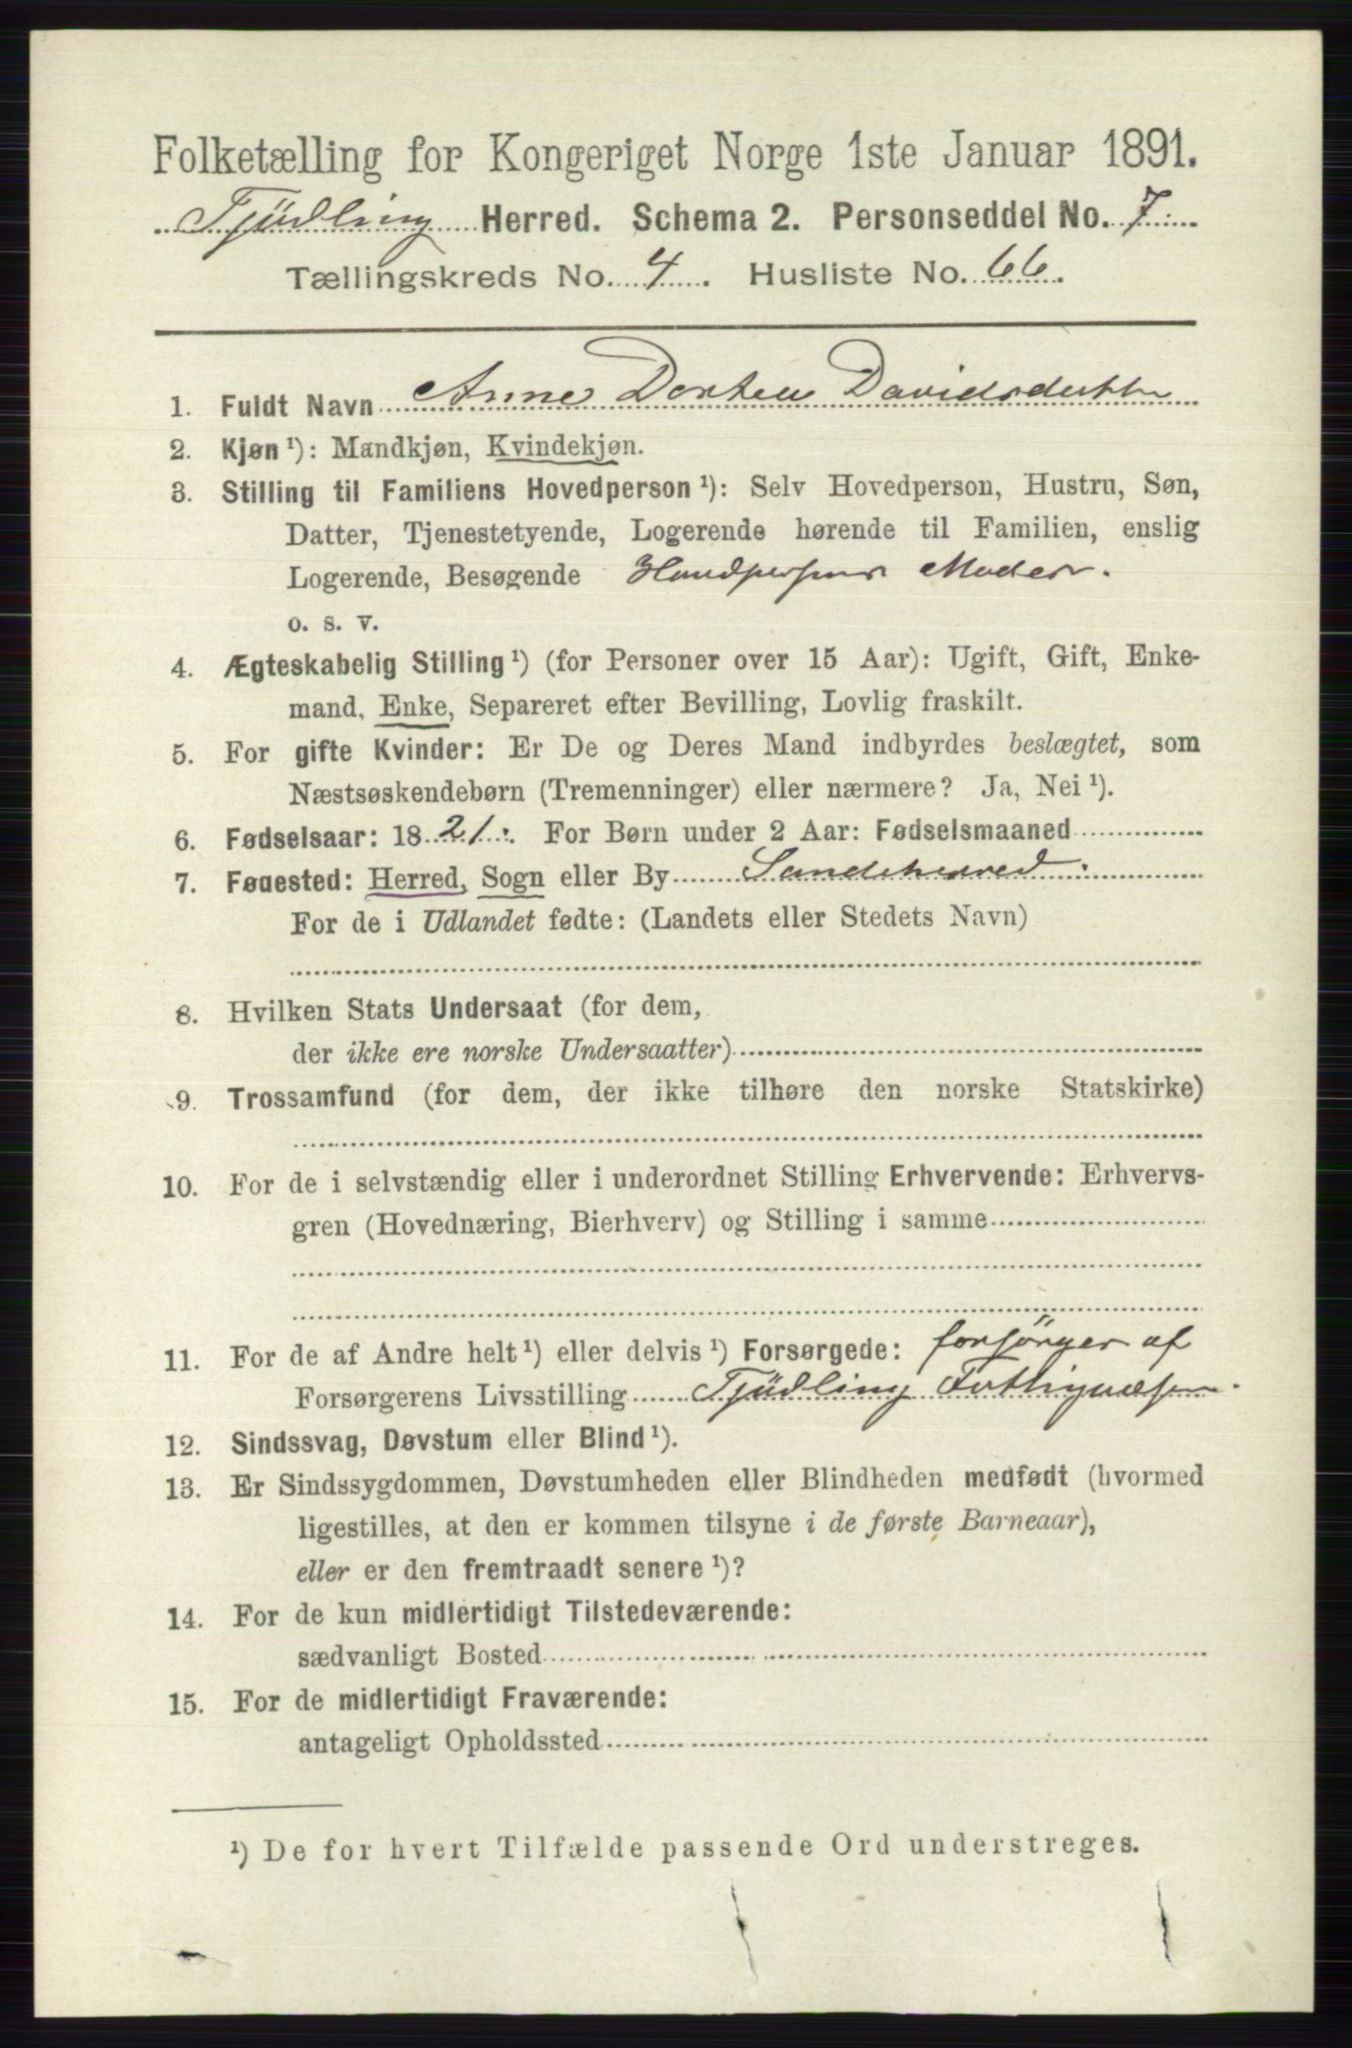 Folketælling for Kongeriget Norge 1ste Januar 1891.
Tjüdling Herred. Schema 2. Personseddel No. 7.
Tællingskreds No. 4. Husliste No. 66.
1. Fuldt Navn Anne Dorthea Davidsdatter
2. Kjøn ¹): Mandkjøn, Kvindekjøn.
3. Stilling til Familiens Hovedperson ¹): Selv Hovedperson, Hustru, Søn,
Datter, Tjenestetyende, Logerende hørende til Familien, enslig
Logerende, Besøgende Hovdpersons Moder.
o. s. v.
4. Ægteskabelig Stilling ¹) (for Personer over 15 Aar): Ugift, Gift, Enke-
mand, Enke, Separeret efter Bevilling, Lovlig fraskilt.
5. For gifte Kvinder: Er De og Deres Mand indbyrdes beslægtet, som
Næstsøskendebørn (Tremenninger) eller nærmere? Ja, Nei ¹).
6. Fødselsaar: 1821. For Børn under 2 Aar: Fødselsmaaned
7. Fødested: Herred, Sogn eller By Sandeherred.
For de i Udlandet fødte: (Landets eller Stedets Navn)
8. Hvilken Stats Undersaat (for dem,
der ikke ere norske Undersaatter)
9. Trossamfund (for dem, der ikke tilhøre den norske Statskirke)
10. For de i selvstændig eller i underordnet Stilling Erhvervende: Erhvervs-
gren (Hovednæring, Bierhverv) og Stilling i samme
11. For de af Andre helt ¹) eller delvis ¹) Forsørgede: forsörges af
Forsørgerens Livsstilling Tjüdling Fattigvæsen.
12. Sindssvag, Døvstum eller Blind ¹).
13. Er Sindssygdommen, Døvstumheden eller Blindheden medfødt (hvormed
ligestilles, at den er kommen tilsyne i de første Barneaar),
eller er den fremtraadt senere ¹)?
14. For de kun midlertidigt Tilstedeværende:
sædvanligt Bosted
15. For de midlertidigt Fraværende:
antageligt Opholdssted
¹) De for hvert Tilfælde passende Ord understreges.